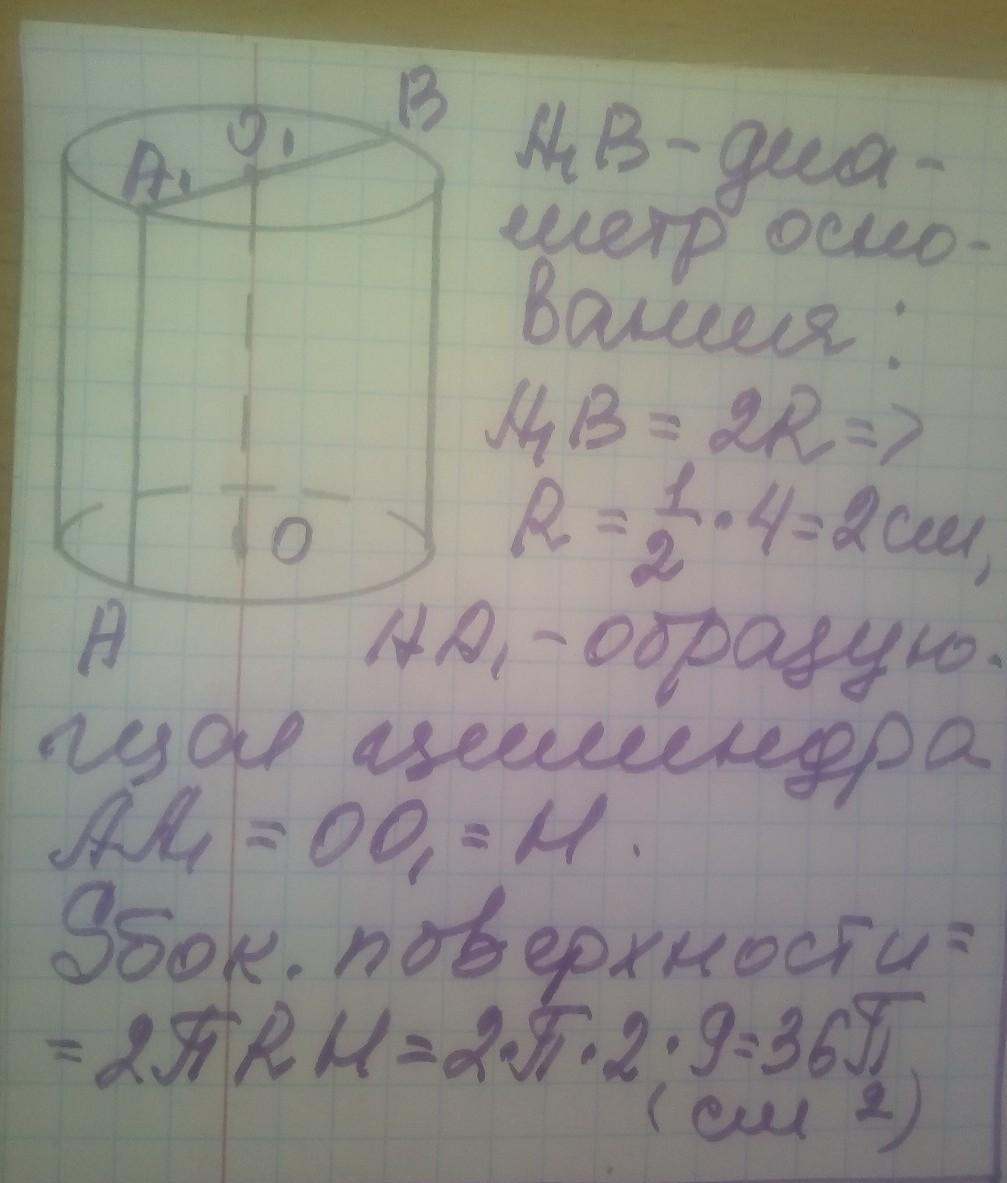 B
O₁
A₁
A₁B - диа-
метр осно-
вания:
A₁B = 2R =>
R = 1/2 · 4 = 2 см,
O
A
AA₁ - образую-
щая цилиндра
AA₁ = OO₁ = H.
Sбок. поверхности =
= 2πRH = 2·π·2·9 = 36π
(см 2)